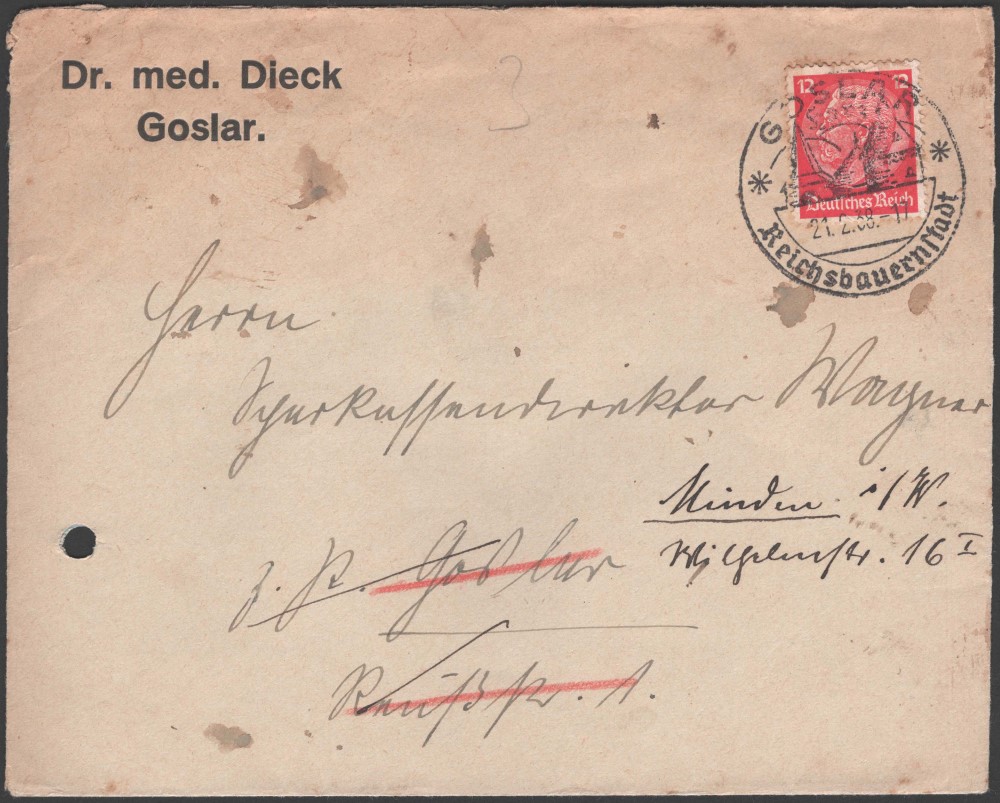 Dr. med. Dieck
Goslar.
3
12 12
Deutsches Reich
GOSLAR
21.2.38.-17
Reichsbauernstadt
Herrn
Sparkassendirektor Wagner
Minden i/W.
Wilhelmstr. 16 I
z. Zt. Goslar
Reußstr. 1.